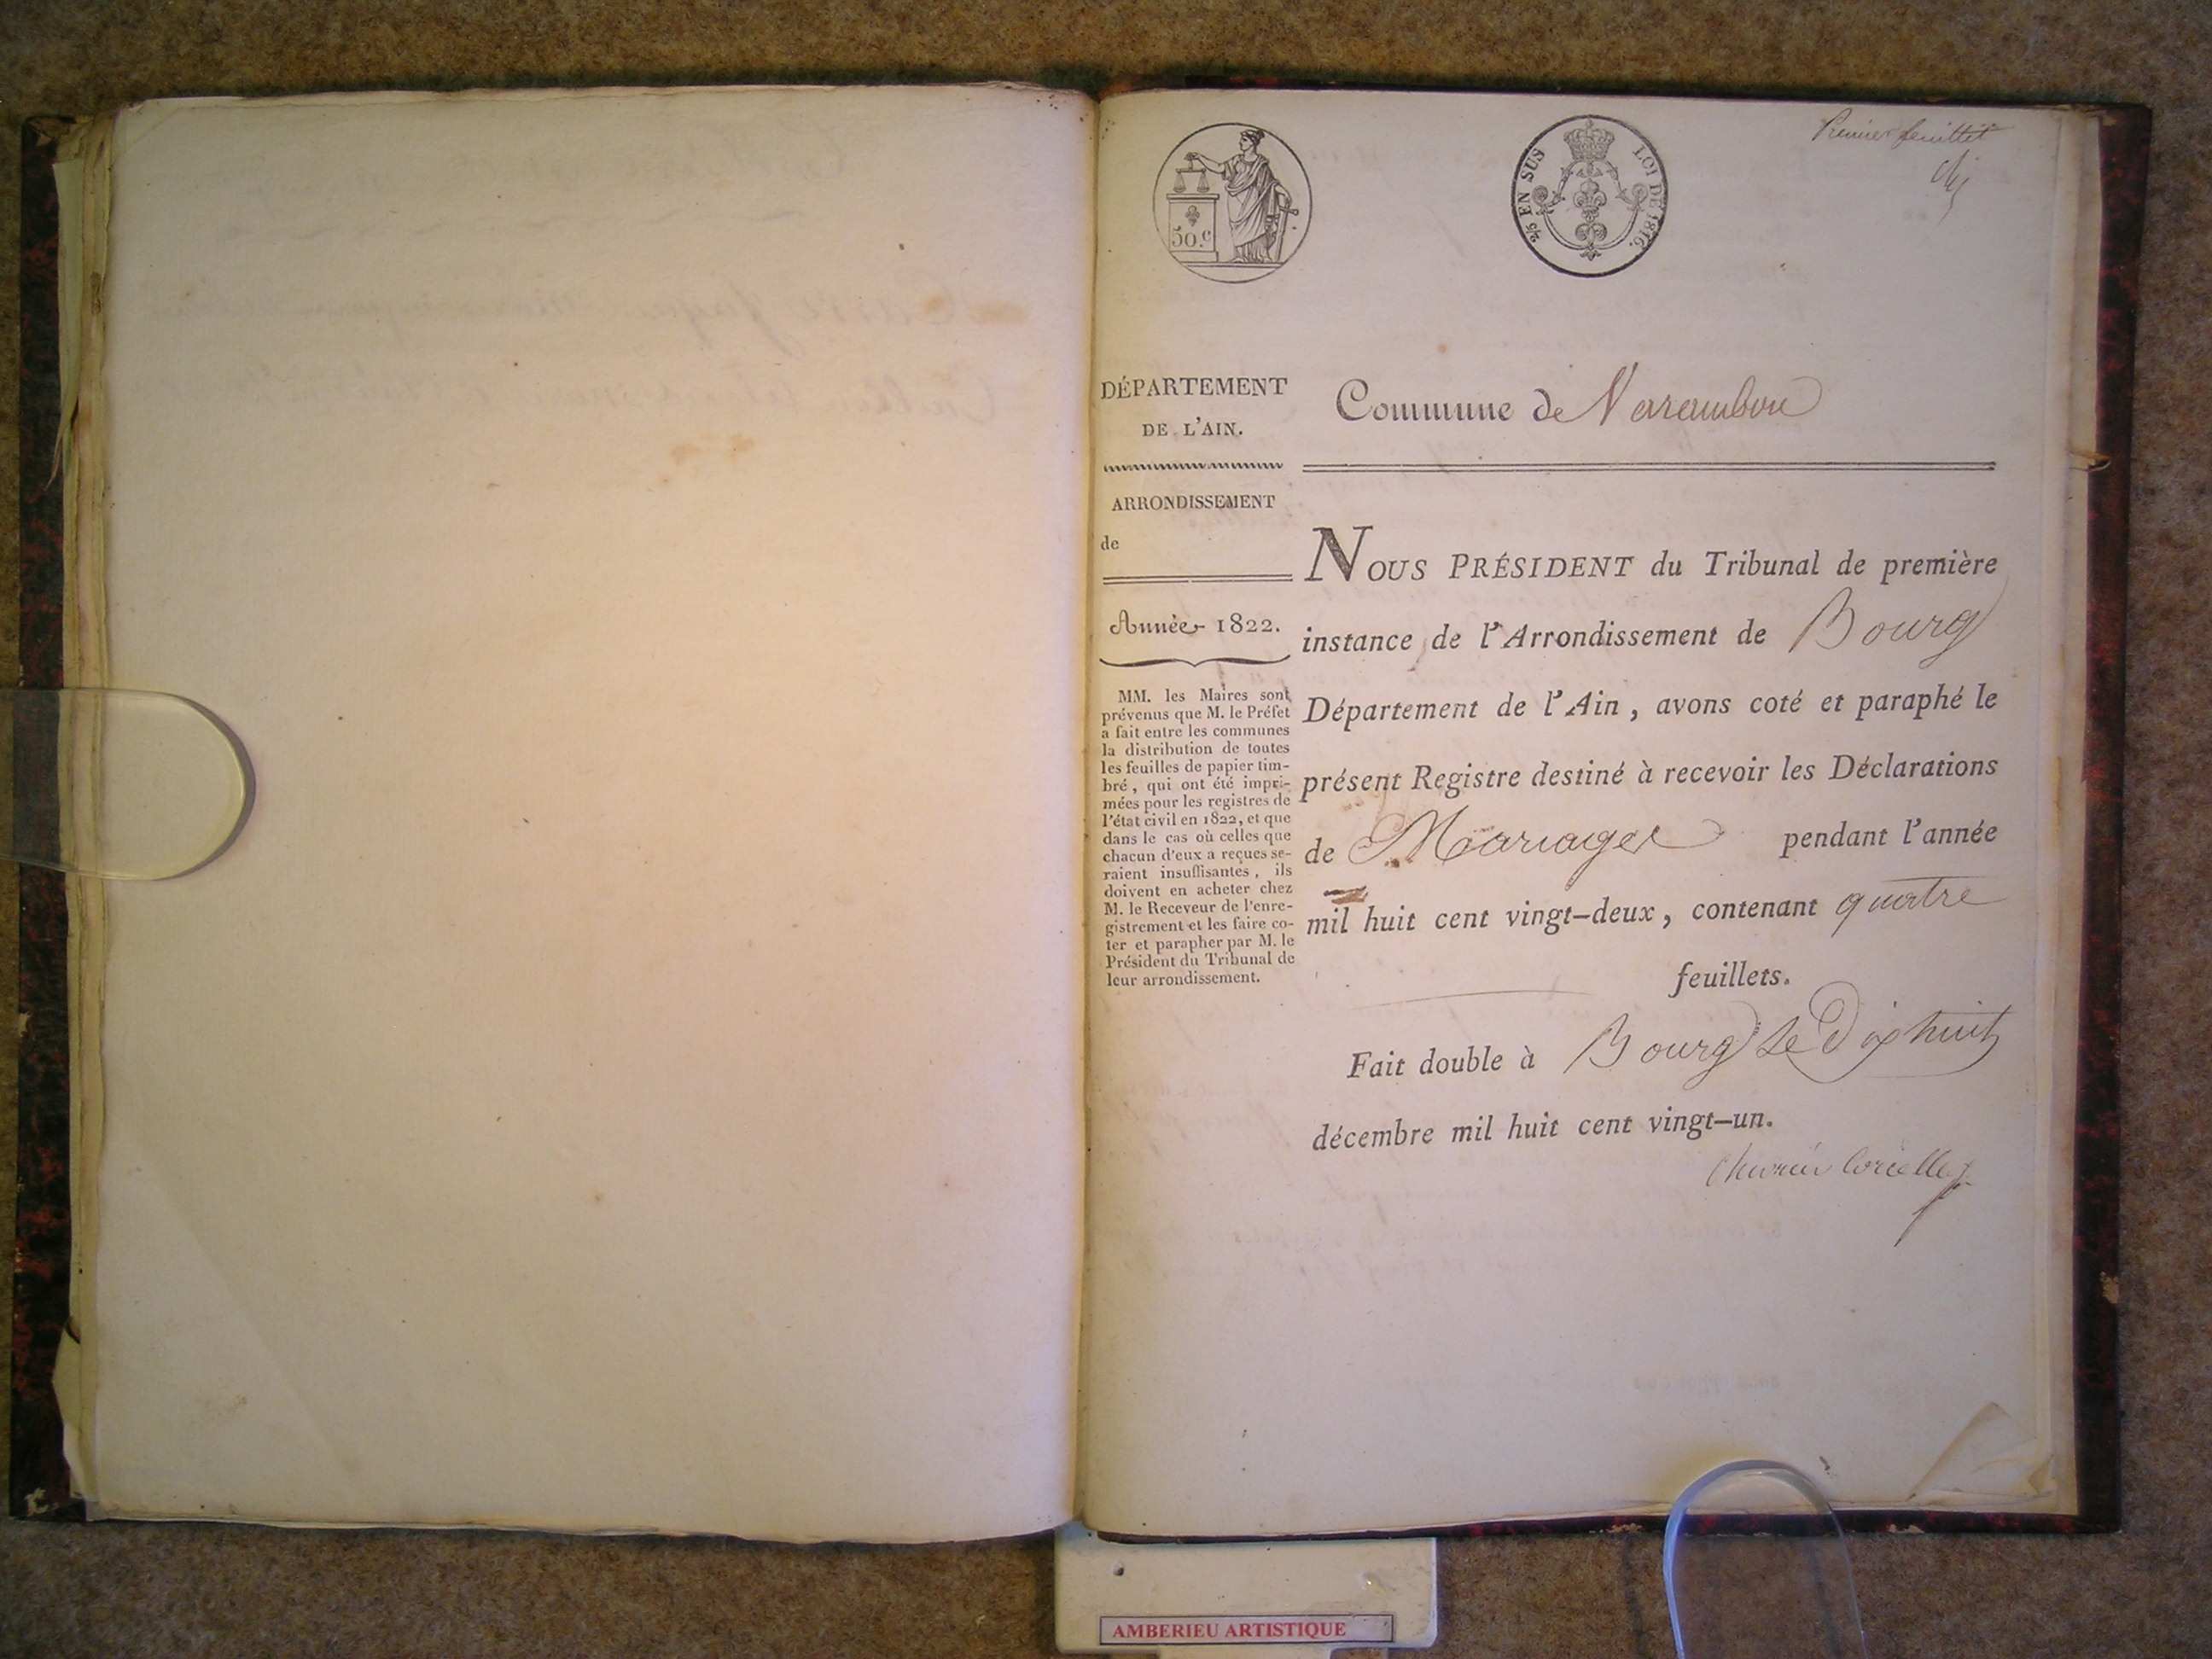 Premier feuillet
50.c
2/5 EN SUS
LOI DE 1816.
DÉPARTEMENT
DE L'AIN.
ARRONDISSEMENT
de
Année 1822.
MM. les Maires sont
prévenus que M. le Préfet
a fait entre les communes
la distribution de toutes
les feuilles de papier tim-
bré, qui ont été impri-
mées pour les registres de
l'état civil en 1822, et que
dans le cas où celles que
chacun d'eux a reçues se-
raient insuffisantes, ils
doivent en acheter chez
M. le Receveur de l'enre-
gistrement et les faire co-
ter et parapher par M. le
Président du Tribunal de
leur arrondissement.
Commune de Varambon
NOUS PRÉSIDENT du Tribunal de première
instance de l'Arrondissement de Bourg
Département de l'Ain, avons coté et paraphé le
présent Registre destiné à recevoir les Déclarations
de Mariages pendant l'année
mil huit cent vingt-deux, contenant quatre
feuillets.
Fait double à Bourg le dix huit
décembre mil huit cent vingt-un.
AMBERIEU ARTISTIQUE